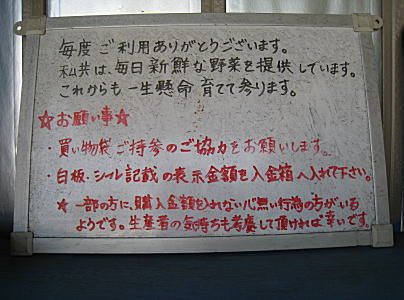 毎度ご利用ありがとうございます。
私共は、毎日新鮮な野菜を提供しています。
これからも一生懸命育てて参ります。
☆お願い事☆
・買い物袋ご持参のご協力をお願いします。
・白板・シール記載の表示金額を入金箱へ入れて下さい。
☆一部の方に、購入金額を入れない心無い行為の方がいる
ようです。生産者の気持ちも考慮して頂ければ幸いです。